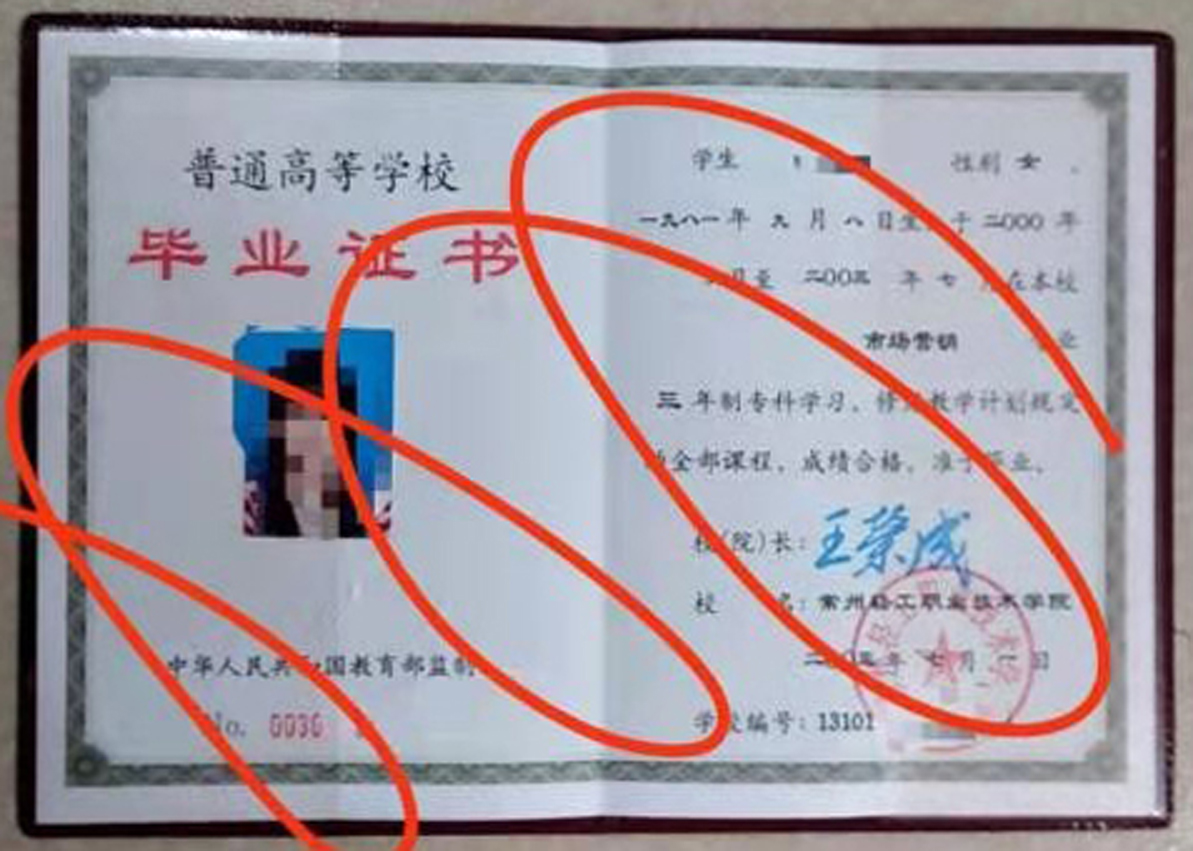 普通高等学校
毕业证书
中华人民共和国教育部监制
No. 0030
学生 性别 女 .
一九八一年 九 月 八 日生, 于 二000 年
月至 二00三 年 七 月在本校
市场营销 专业
三 年制专科学习, 修完教学计划规定
的全部课程, 成绩合格, 准予毕业。
校(院)长: 王荣成
校 名: 常州轻工职业技术学院
二00三年 七 月 一 日
学校编号: 13101